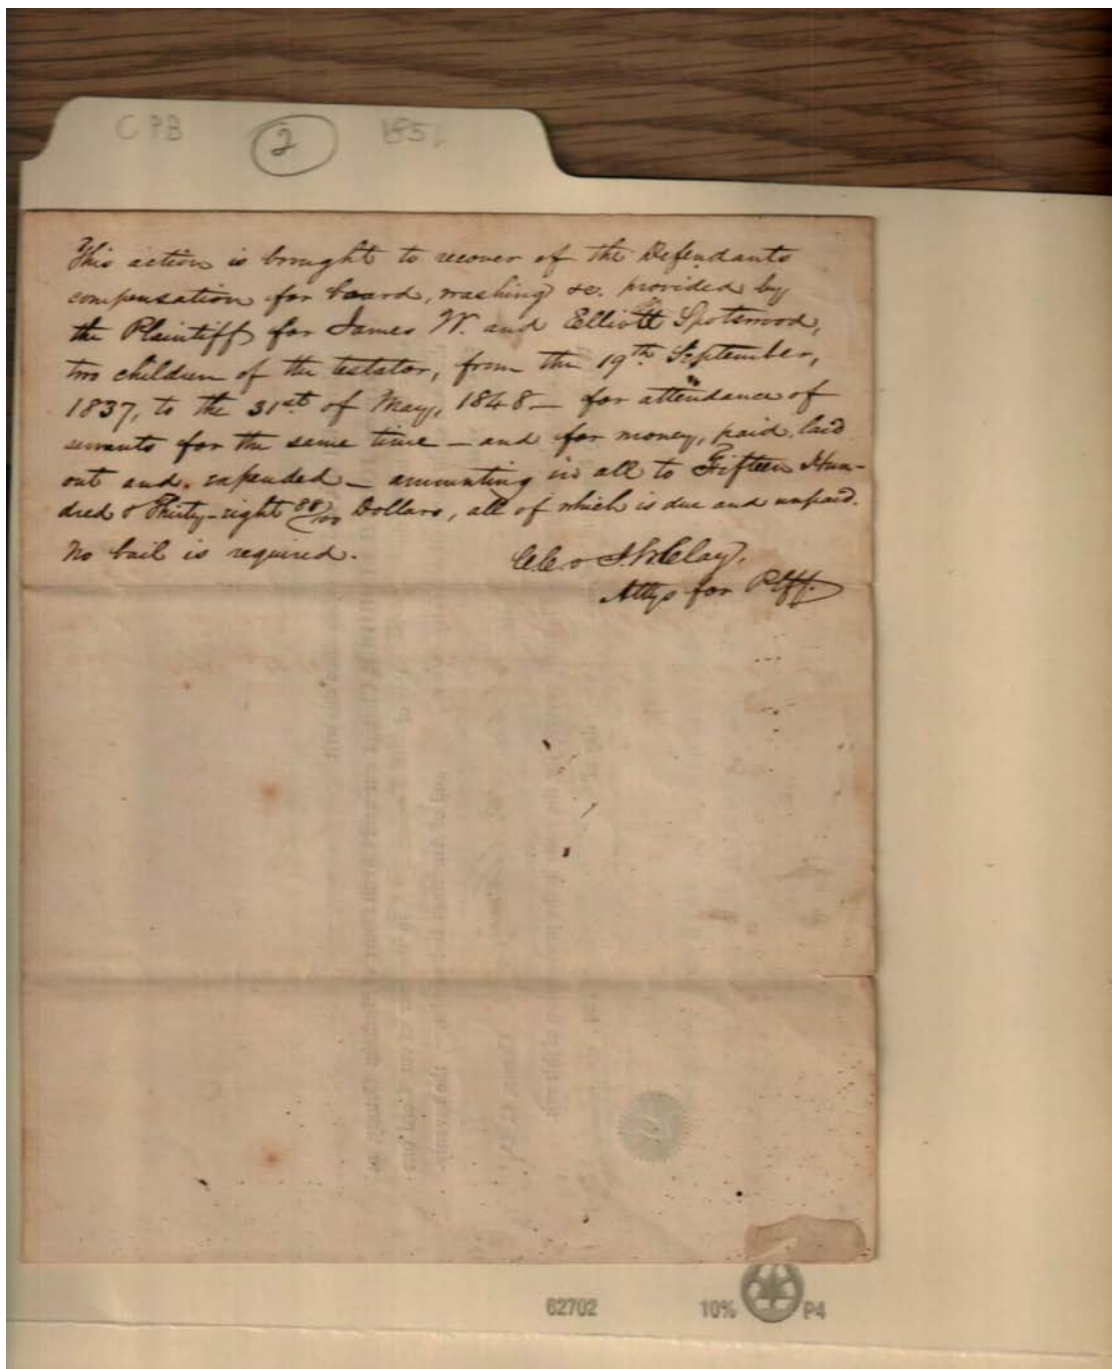 CPB 2 185
This action is brought to recover of the Defendants
compensation for board, washing &c. provided by
the Plaintiff for James W. and Elliott Spotswood,
two children of the testator, from the 19th September,
1837, to the 31st of May, 1848 — for attendance of
servants for the same time — and for money, paid, laid
out and expended — amounting in all to Fifteen Hun-
dred & Thirty-eight 88/100 Dollars, all of which is due and unpaid.
No bail is required.
C.C. & J.W. Clay,
Attys for Plff.
62702 10% P4